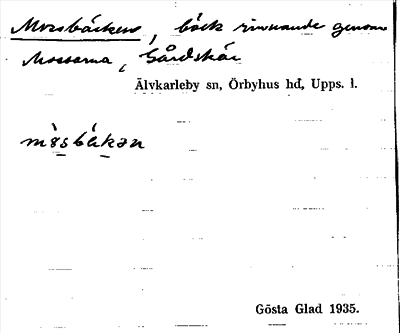 Mossbäcken, bäck rinnande genom
Mossarna, Gårdskär
Älvkarleby sn, Örbyhus hd, Upps. l.
mòsbäkən
Gösta Glad 1935.